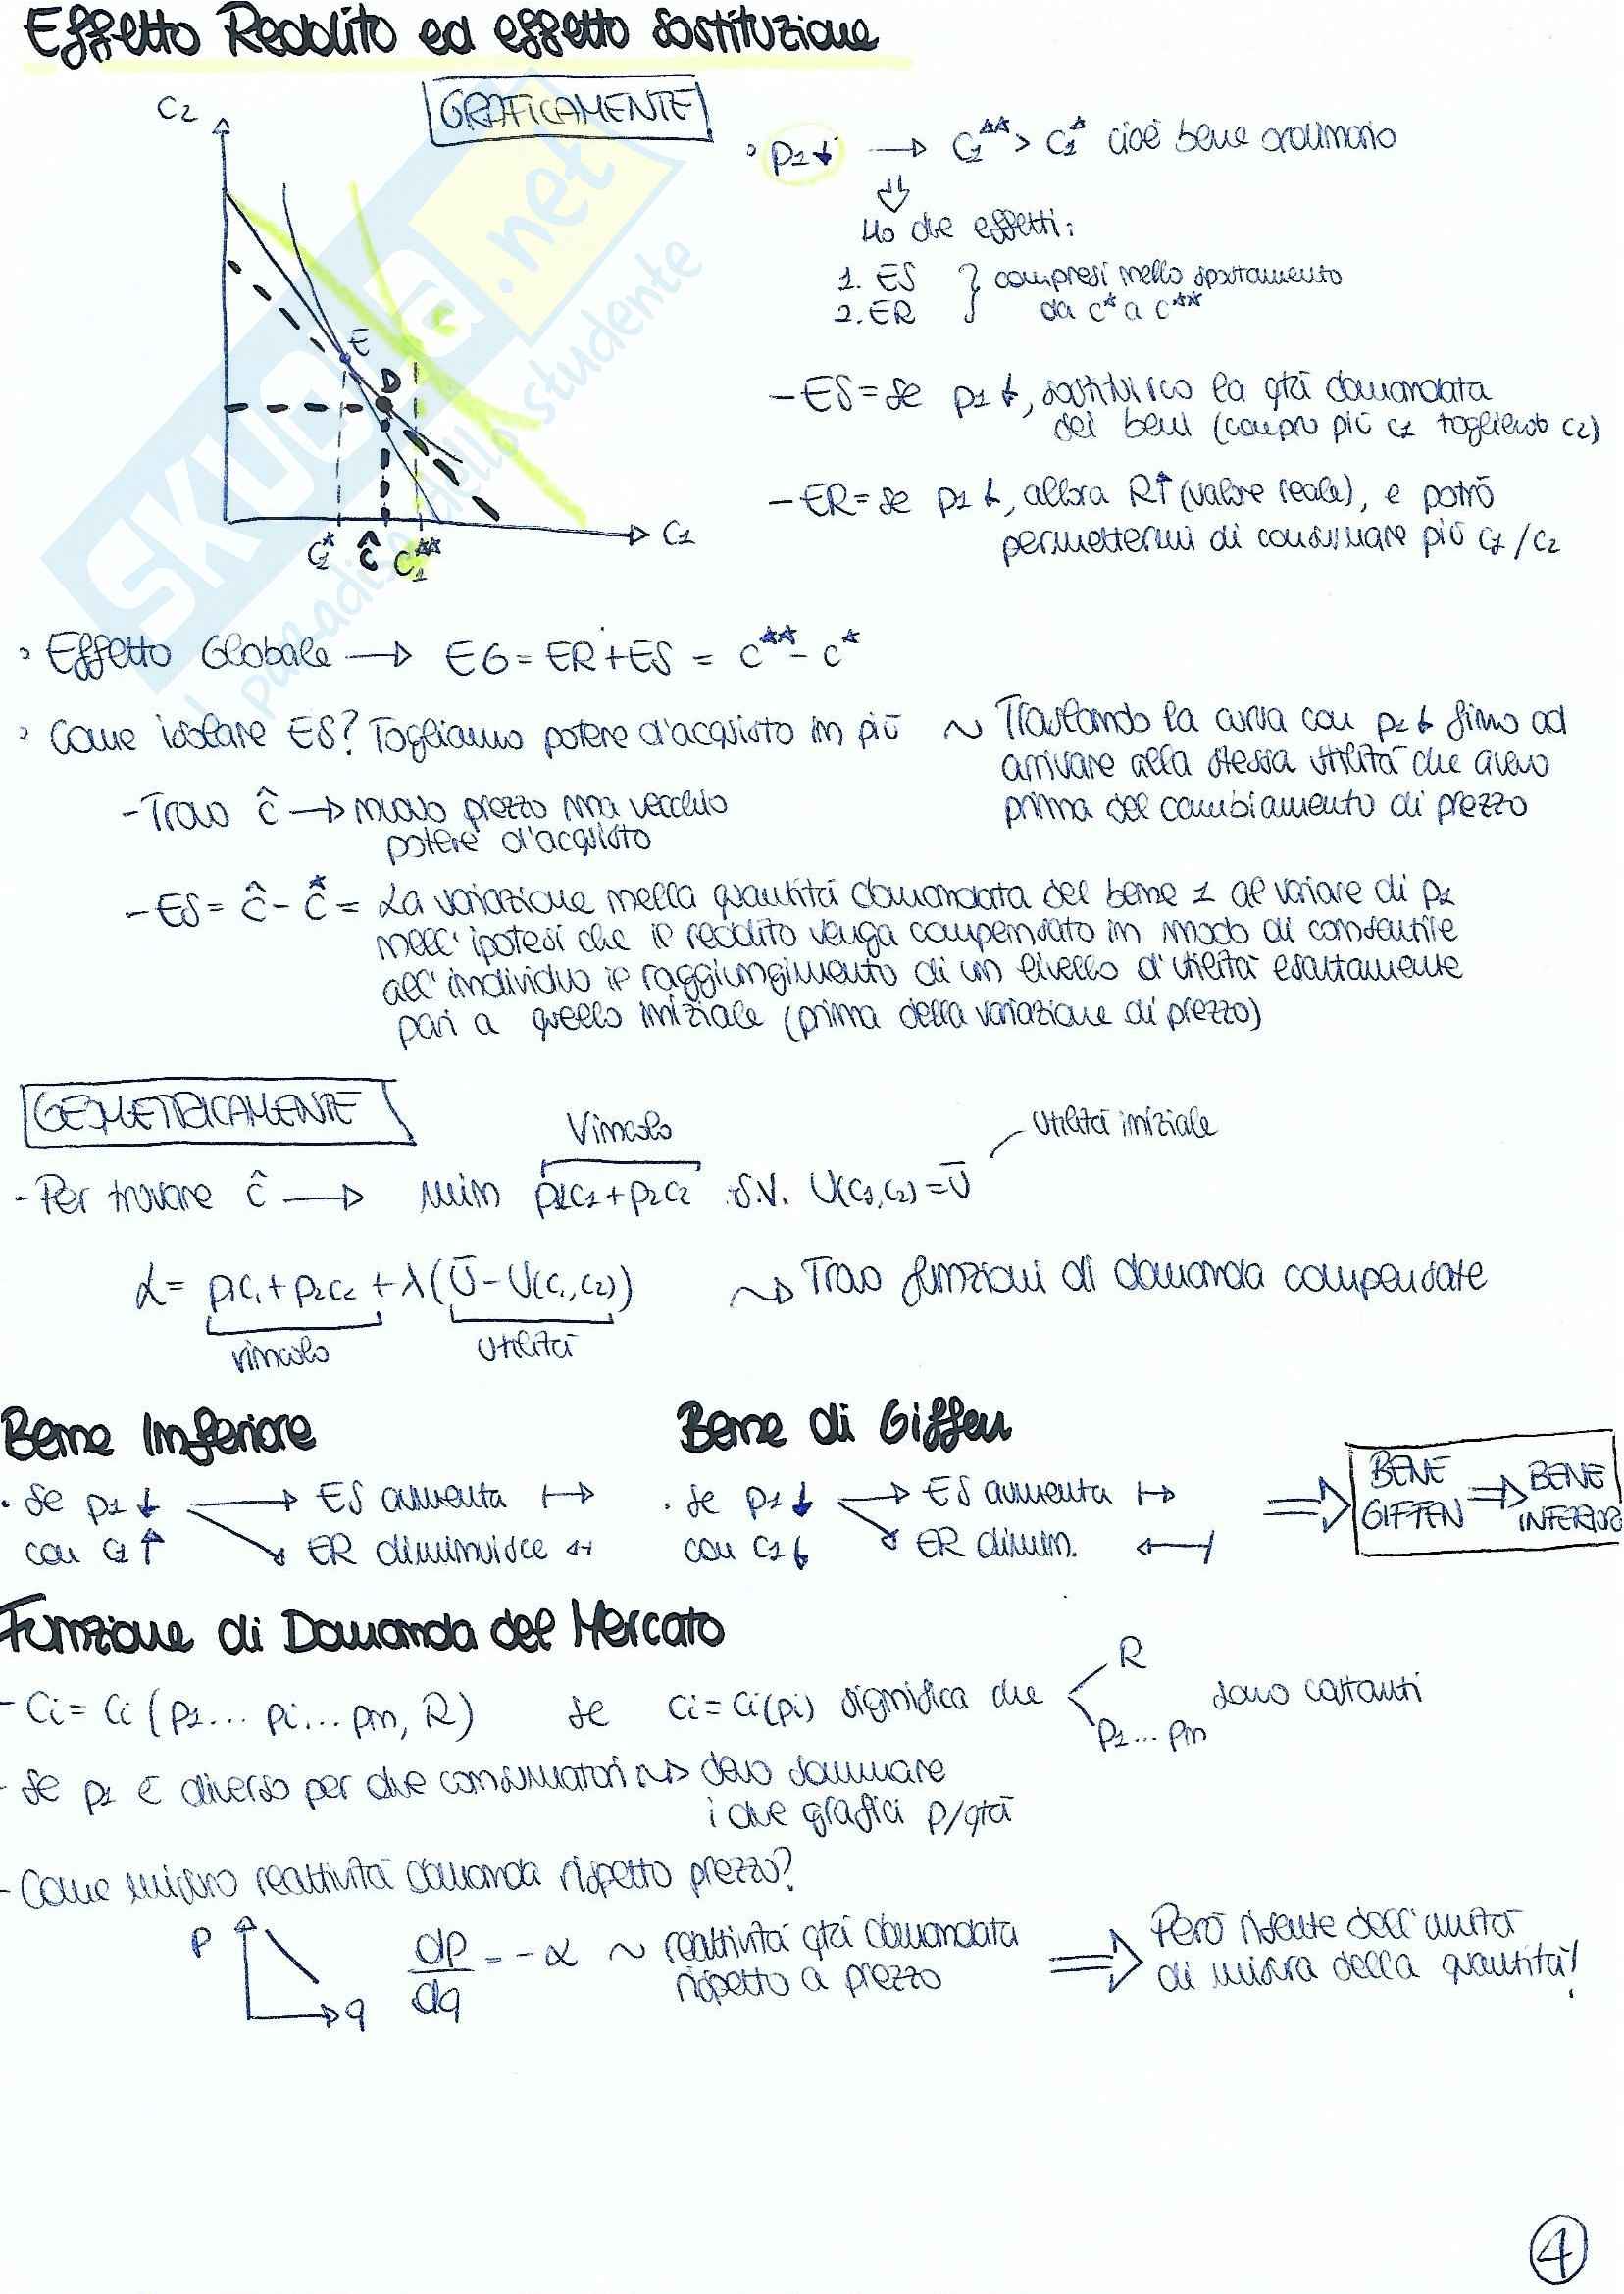 Effetto Reddito ed effetto sostituzione
GRAFICAMENTE
C2
E
D
C1* ĉ C1** C1
° p1↓ → C1** > C1* cioè bene ordinario
⇓
Ho due effetti:
1. ES } compresi nello spostamento
2. ER } da c* a c**
- ES = se p1↓, sostituisco la qtà domandata
dei beni (compro più c1 togliendo c2)
- ER = se p1↓, allora R↑ (valore reale), e potrò
permettermi di consumare più c1/c2
° Effetto Globale → EG = ER + ES = c** - c*
° Come isolare ES? Togliamo potere d'acquisto in più ~ Traslando la curva con p1↓ fino ad
arrivare alla stessa utilità che avevo
prima del cambiamento di prezzo
- Trovo ĉ → nuovo prezzo ma vecchio
potere d'acquisto
- ES = ĉ - c* = La variazione nella quantità domandata del bene 1 al variare di p1
nell'ipotesi che il reddito venga compensato in modo di consentire
all'individuo il raggiungimento di un livello d'utilità esattamente
pari a quello iniziale (prima della variazione di prezzo)
GEOMETRICAMENTE
Vincolo
utilità iniziale
- Per trovare ĉ → min p1c1 + p2c2 s.v. U(c1,c2) = Ū
L = p1c1 + p2c2 + λ(Ū - U(c1,c2)) ~> Trovo funzioni di domanda compensate
vincolo utilità
Bene Inferiore Bene di Giffen
. Se p1↓ → ES aumenta ↦
con c1↑ → ER diminuisce ↤
. se p1↓ → ES aumenta ↦
con c1↓ → ER dimin. ↤
⇒ BENE GIFFEN ⇒ BENE INFERIOR
Funzione di Domanda del Mercato
- Ci = Ci (p1... pi... pn, R) se Ci = Ci(pi) significa che < R p1... pn sono costanti
- Se p1 è diverso per due consumatori ~> devo sommare
i due grafici p/qtà
- Come misuro reattività domanda rispetto prezzo?
p q
dp/dq = -α ~ reattività qtà domandata
rispetto a prezzo
⇒ Però risente dell'unità
di misura della quantità!
4
SKUOLA.net
il paradiso dello studente